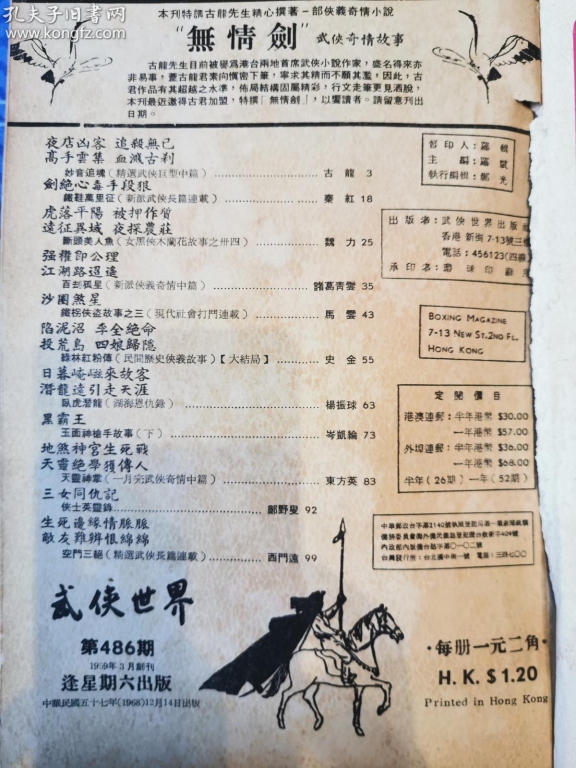 孔夫子旧书网
www.kongfz.com
本刊特請古龍先生精心撰著一部俠義奇情小說
"無情劍" 武俠奇情故事
古龍先生目前被譽爲港台兩地首席武俠小說作家,盛名得來亦
非易事,蓋古龍君素向慎密下筆,寧求其精而不願其濫,因此,古
君作品有其超越之水準,佈局結構固屬精彩,行文走筆更見洒脫,
本刊最近邀得古君加盟,特撰「無情劍」,以饗讀者。請留意刊出
日期。
夜店凶客 追殺無已
高手雲集 血濺古刹
妙音追魂(精選武俠巨型中篇)……古龍 3
劍絕心毒手段狠
鐵鞋萬里征(新派武俠長篇連載)……秦紅 18
虎落平陽 被押作質
遠征異域 夜探農莊
斷頭美人魚(女黑俠木蘭花故事之卅四)……魏力 25
强權即公理
江湖路迢遙
百刦孤星(新派俠義奇情中篇)……諸葛青雲 35
沙圈煞星
鐵柺俠盜故事之三(現代社會打鬥連載)……馬雲 43
陷泥沼 李全絕命
投荒島 四娘歸隱
綠林紅粉傳(民間歷史俠義故事)【大結局】……史金 55
日暮崦嵫來故客
潛龍遠引走天涯
臥虎潛龍(湖海恩仇錄)……楊振球 63
黑霸王
玉面神槍手故事(下)……岑凱綸 73
地煞神宮生死戰
天靈絕學獲傳人
天靈神掌(一月完武俠奇情中篇)……東方英 83
三女同仇記
俠士英靈錄……鄺野叟 92
生死邊緣情脈脈
敵友難辨恨綿綿
空門三絕(精選武俠長篇連載)……西門遠 99
督印人:羅輯
主編:羅斌
執行編輯:鄭光
出版者:武俠世界出版
香港新街7-13號三樓
電話:456123(四線)
承印者:環球印
BOXING MAGAZINE
7-13 NEW ST. 2ND FL.
HONG KONG
定閱價目
港澳連郵:半年港幣 $30.00
一年港幣 $57.00
外埠連郵:半年港幣 $36.00
一年港幣 $68.00
半年(26期)一年(52期)
武俠世界
第486期
1959年3月創刊
逢星期六出版
中華民國五十七年(1968)12月14日出版
·每册一元二角·
H. K. $ 1.20
Printed in Hong Kong
孔夫子旧书网
www.kongfz.com